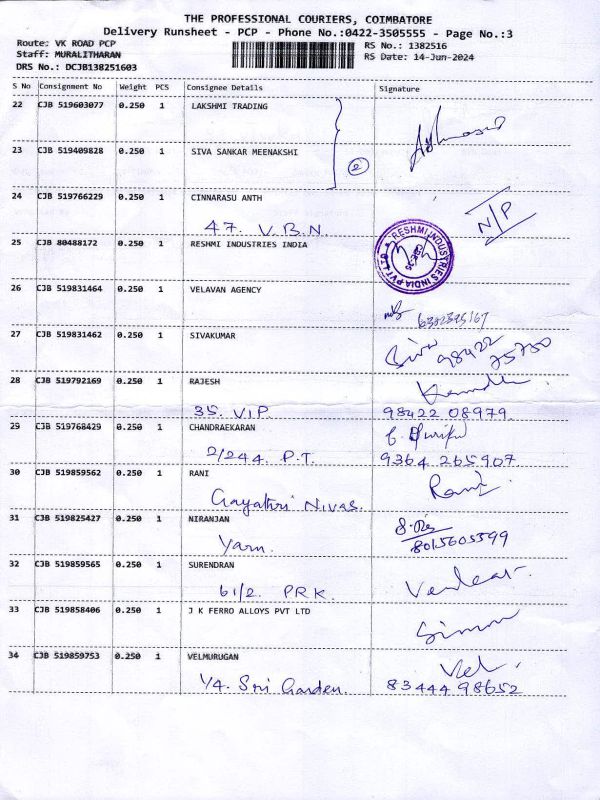 THE PROFESSIONAL COURIERS, COIMBATORE
Delivery Runsheet - PCP - Phone No.:0422-3505555 - Page No.:3
Route: VK ROAD PCP
Staff: MURALITHARAN
DRS No.: DCJB138251603
RS No.: 1382516
RS Date: 14-Jun-2024
S No Consignment No Weight PCS Consignee Details Signature
22 CJB 519603077 0.250 1 LAKSHMI TRADING
23 CJB 519409828 0.250 1 SIVA SANKAR MEENAKSHI
2
24 CJB 519766229 0.250 1 CINNARASU ANTH
47. V.B.N. N/P
25 CJB 80488172 0.250 1 RESHMI INDUSTRIES INDIA
RESHMI INDUSTRIES INDIA PVT LTD
CBE-35
26 CJB 519831464 0.250 1 VELAVAN AGENCY
6382395167
27 CJB 519831462 0.250 1 SIVAKUMAR
Siva 98422
75750
28 CJB 519792169 0.250 1 RAJESH
35. V.I.P. 98422 08979
29 CJB 519768429 0.250 1 CHANDRAEKARAN
2/244. P.T. 9364 265907
30 CJB 519859562 0.250 1 RANI
Gayathri Nivas. Rani
31 CJB 519825427 0.250 1 NIRANJAN
Yarn. 8015605599
32 CJB 519859565 0.250 1 SURENDRAN
61/2. PRK. Venkat
33 CJB 519858406 0.250 1 J K FERRO ALLOYS PVT LTD
Simon
34 CJB 519859753 0.250 1 VELMURUGAN
Vel.
Y4. Sri Garden. 83444 98652